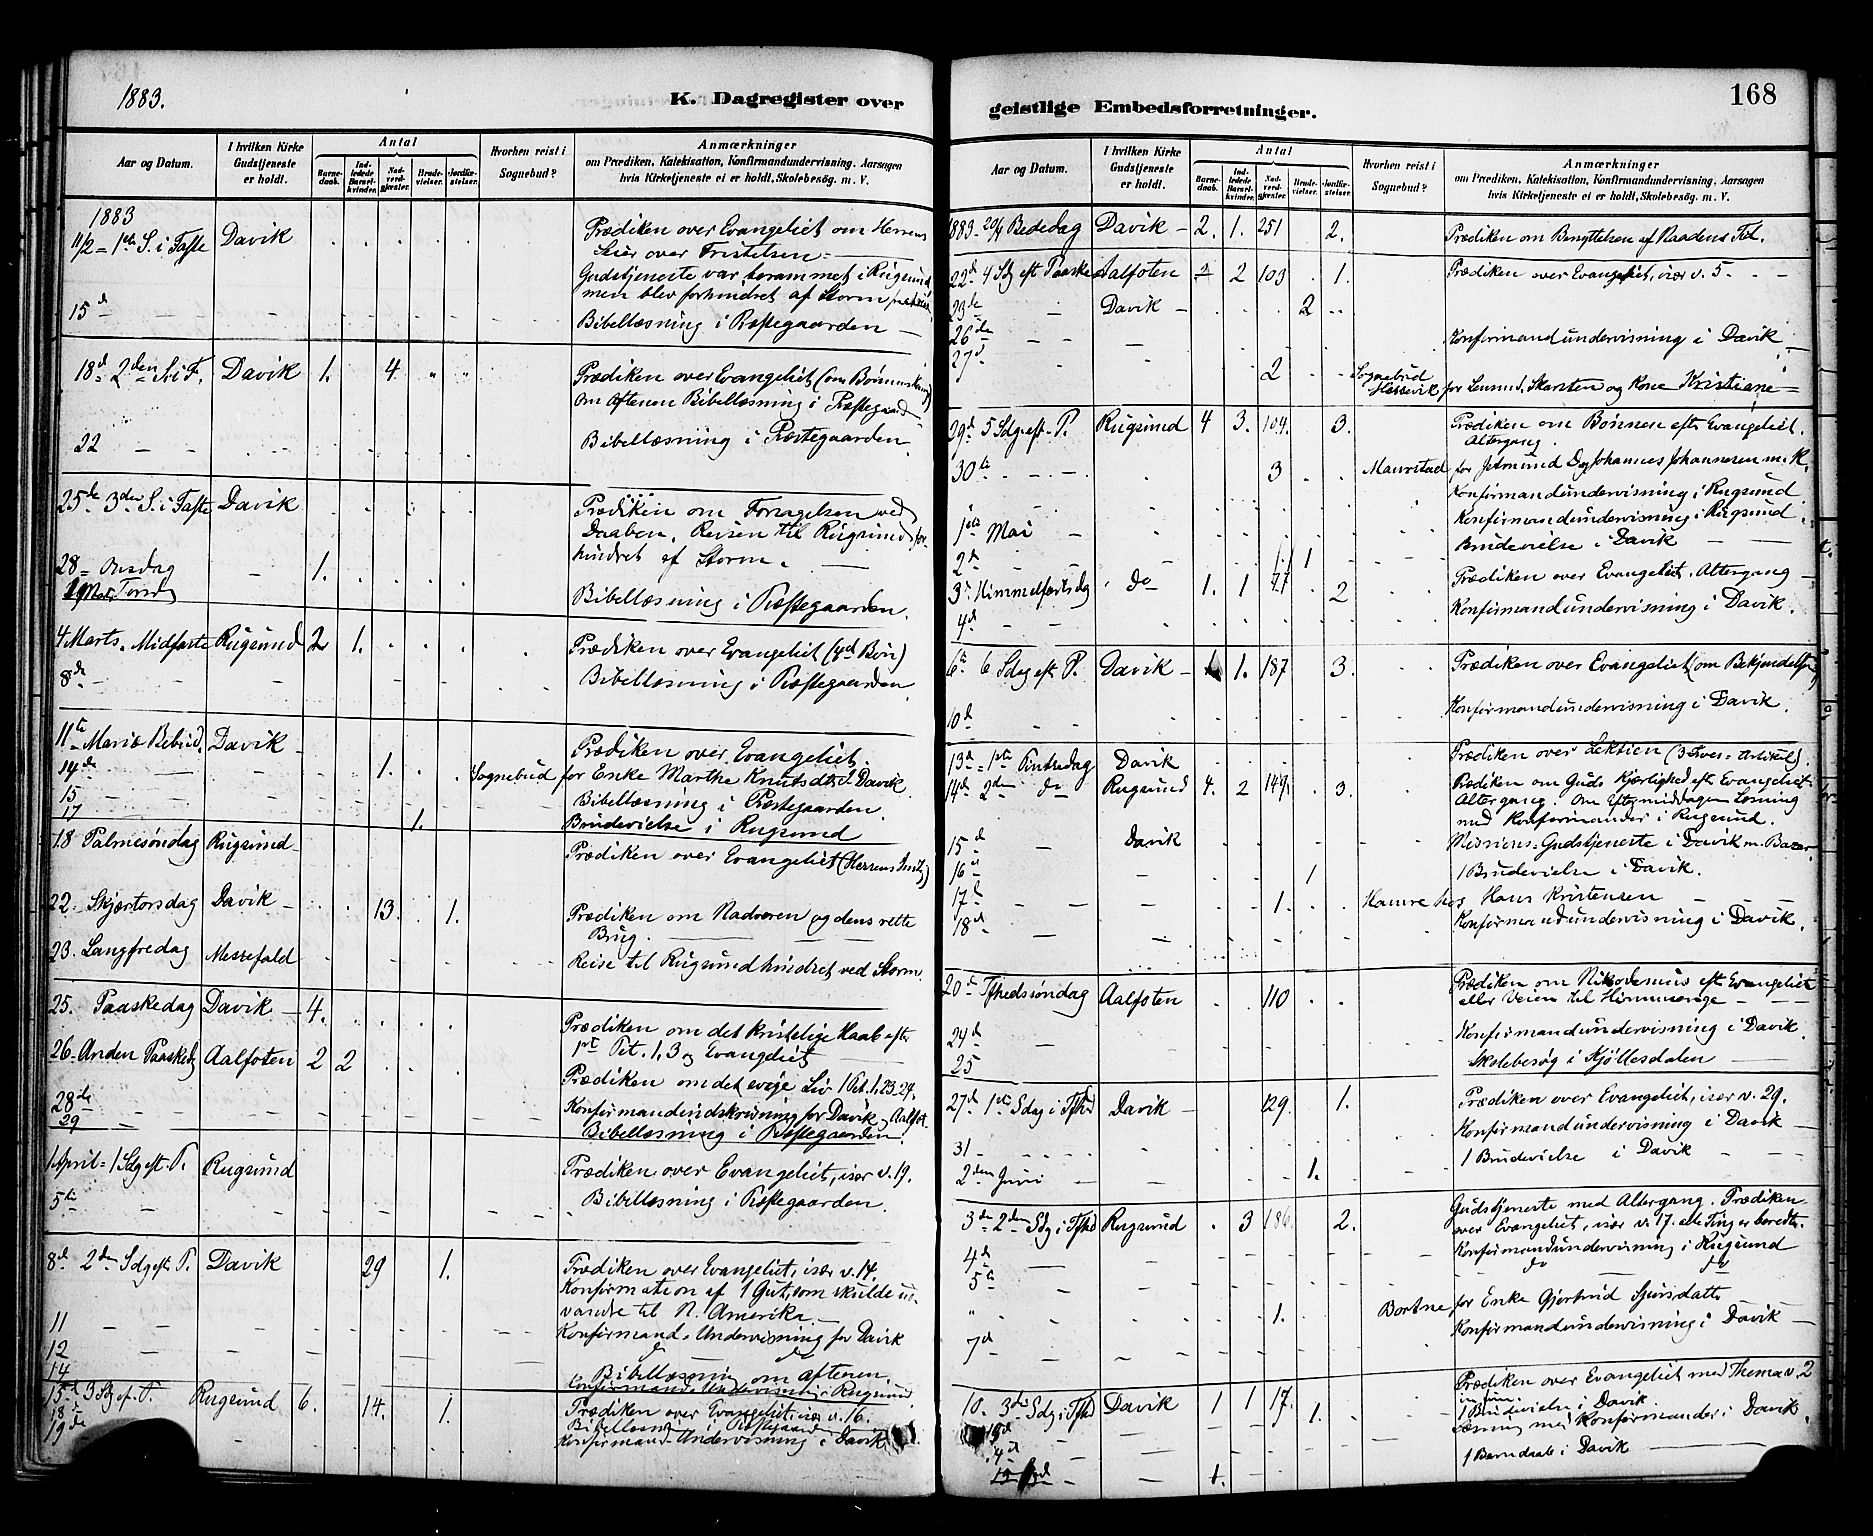 1883.
K. Dagregister over
Aar og Datum.
I hvilken Kirke Gudstjeneste er holdt.
Antal
Barnedaab.
Indledede Barselkvinder.
Nadverdgjester.
Brudevielser.
Jordfæstelser.
Hvorhen reist i Sognebud?
Anmærkninger
om Prædiken, Katekisation, Konfirmandundervisning, Aarsagen
hvis Kirketjeneste ei er holdt, Skolebesøg. m. V.
1883
11/2 = 1ste S. i Faste Davik Prædiken over Evangeliet om Herrens
Seier over Fristelsen =
Gudstjeneste var berammet i Rugsund
men blev forhindret af Storm
15d Bibellæsning i Præstegaarden
18d 2den S. i F. Davik 1. 4 Prædiken over Evangeliet
Om Aftenen Bibellæsning i Præstegaard
22 Bibellæsning i Præstegaarden
25de 3die S. i Faste Davik Prædiken om Forsagelsen ved
Daaben. Reisen til Rugsund for-
hindret af Storm.
28 = Onsdag 1.
1 Marts Torsd Bibellæsning i Præstegaarden.
4 Marts. Midfaste Rugsund 2 1. Prædiken over Evangeliet (4de Bøn)
8de Bibellæsning i Præstegaarden
11te Mariæ Bebud. Davik Prædiken over Evangeliet.
14de 1. Sognebud for Enke Marthe Knutsdtr. Davik
15 Bibellæsning i Præstegaarden.
17 1. Brudevielse i Rugsund
18 Palmesøndag Rugsund Prædiken over Evangeliet (Herrens
22. Skjærtorsdag Davik 13. 1. Prædiken om Nadveren og dens rette
Brug.
23. Langfredag Messefald Reise til Rugsund hindret ved Storm.
25. Paaskedag Davik 4. Prædiken om det kristelige Haab efter
1ste Pet. 1,3 og Evangeliet
26. Anden Paaskedg Aalfoten 2 2 Prædiken om det evige Liv 1 Pet. 1, 23-24.
28de Konfirmandindskrivning for Davik, Aalfot.
29 Bibellæsning i Præstegaarden.
1 April = 1 Sdg eft. P. Rugsund Prædiken over Evangeliet, især v. 19.
5te Bibellæsning i Præstegaarden.
8d 2den Sdg eft. P. Davik 29 1. Prædiken over Evangeliet, især v. 14.
Konfirmation af 1 Gut, som skulde ud-
vandre til N. Amerika.
11 Konfirmand-Undervisning for Davik
12 d d
14 Bibellæsning om Aftenen.
Konfirmand-Undervisning i Rugsund
15d 3 Sdg ef. P. Rugsund 6. 14. 1. Prædiken over Evangeliet, især v. 16.
18d Bibellæsn i Præstegaard
19de Konfirmand-Undervisning i Davik
geistlige Embedsforretninger.
168
Aar og Datum.
I hvilken Kirke Gudstjeneste er holdt.
Antal
Barnedaab.
Indledede Barselkvinder.
Nadverdgjester.
Brudevielser.
Jordfæstelser.
Hvorhen reist i Sognebud?
Anmærkninger
om Prædiken, Katekisation, Konfirmandundervisning, Aarsagen
hvis Kirketjeneste ei er holdt, Skolebesøg. m. V.
1883. 20/4 Bededag Davik 2. 1. 251 2. Prædiken om Benyttelsen af Naadens Tid.
22d 4 Sdg eft Paaske Aalfoten 2 2 103 1. Prædiken over Evangeliet, især v. 5.
23de Davik 2
26de Konfirmandundervisning i Davik
27d 2 Sognebud
Hessevik for Skarsten og Kone Kristiane
29d 5 Sdg eft. P. Rugsund 4 3. 104. 3. Prædiken om Bønnen efter Evangeliet.
Altergang.
30te 3 Maurstad for Jetmund og Johannes Johannesen m. K.
Konfirmandundervisning i Rugsund
1ste Mai Konfirmandundervisning i Rugsund
2d 1 Brudevielse i Davik
3d Himmelfartsdg do 1. 1 77 2 Prædiken over Evangeliet. Altergang
4d Konfirmandundervisning i Davik.
6te 6 Sdag eft P. Davik 1 1. 187 3. Prædiken over Evangeliet (om Bekjendelsen)
10d Konfirmandundervisning i Davik.
13d = 1ste Pintsedag Davik Prædiken over Lektien (3 Troes-Artikel).
14d 2den do Rugsund 4. 2 149. 3. Prædiken om Guds Kjærlighed eft Evangeliet.
Altergang. Om Eftermiddagen Læsning
med Konfirmander i Rugsund.
15d Davik Missions-Gudstjeneste i Davik m. Bazar.
16d 1 1 Brudevielse i Davik.
17d 1. Hamre hos Hans Kristensen
18d Konfirmandundervisning i Davik.
20d Trefhedssøndag Aalfoten 110 Prædiken om Nikodemus eft Evangeliet
eller Veien til Himmerige
24d Konfirmandundervisning i Davik
25 Skolebesøg i Kjøllesdalen
27d 1ste Sdag i Tfhd Davik 129. 1. Prædiken over Evangeliet, især v. 29.
31 Konfirmandundervisning i Davik
2den Juni 1. 1 Brudevielse i Davik
3de 2den Sdg i Tfhd Rugsund 3 186. 2. Gudstjeneste med Altergang. Prædiken
over Evangeliet, især v. 17. alle Ting er beredte.
4d Konfirmandundervisning i Rugsund
5te do do
1. Bortne for Enke Gjertrud Sjursdatter
7d Konfirmandundervisning i Davik
10. 3die Sdg i Tfhd Davik 1 1 17. Prædiken over Evangeliet med Thema v. 2
1. 1 Brudevielse i Davik
Læsning med Konfirmander i Davik
1. 1 Barnedaab i Davik